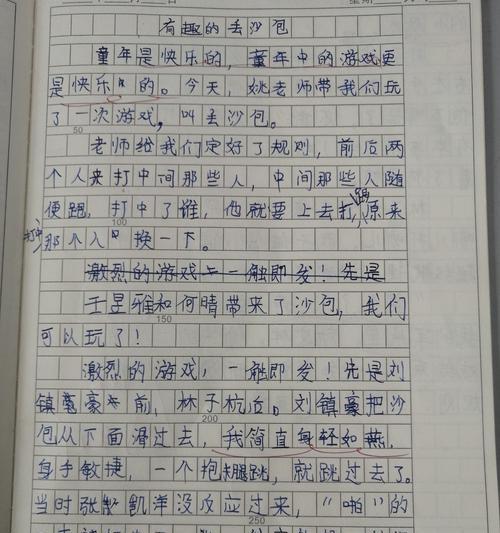 有趣的丢沙包
童年是快乐的，童年中的游戏更
是快乐的。今天，姚老师带我们玩
了一次游戏，叫丢沙包。
50
老师给我们定好了规则，前后两
个人来打中间那些人，中间那些人随
便跑，打中了谁，他就要上去打，跟原来
100
打中
那个人换一下。
激烈的游戏一触即发！先是
王昱雅和何晴带来了沙包，我们
150
可以玩了！
激烈的游戏，一触即发！先是刘
镇豪前，林子杭后。刘镇豪把沙
200
包从下面滑过去，我简直身轻如燕，
身手敏捷，一个抱腿跳，就跳过去了。
当时张凯洋没反应过来，“啪”的
250